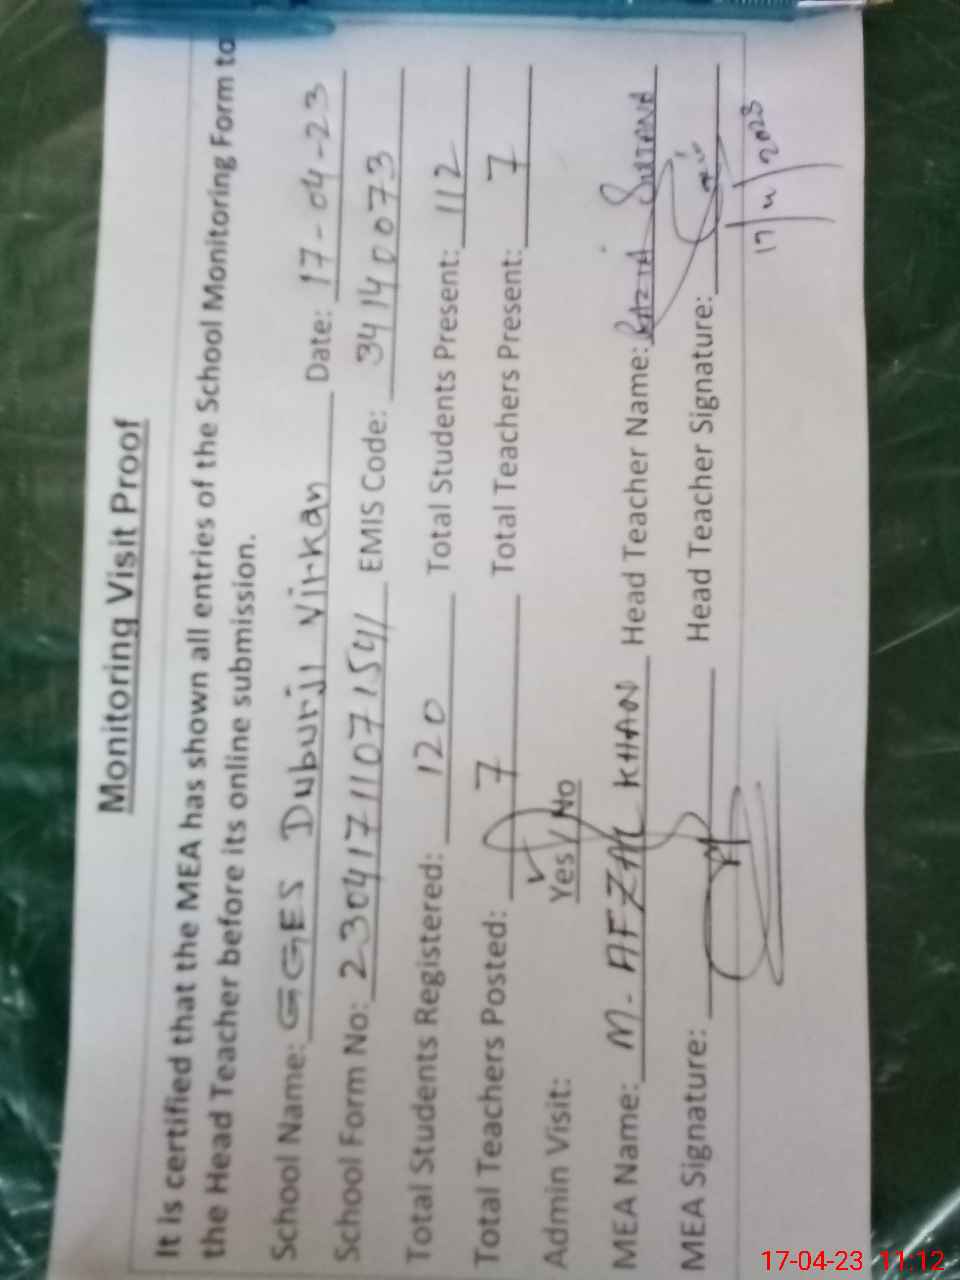 Monitoring Visit Proof
It is certified that the MEA has shown all entries of the School Monitoring Form to
the Head Teacher before its online submission.
School Name: GGES Duburji Virkan Date: 17-04-23
School Form No: 23041711071541 EMIS Code: 34140073
Total Students Registered: 120 Total Students Present: 112
Total Teachers Posted: 7 Total Teachers Present: 7
Admin Visit: Yes/No
MEA Name: M. AFZAL KHAN Head Teacher Name: RAZIA SULTANA
MEA Signature: Head Teacher Signature:
17/4/2023
17-04-23 11:12